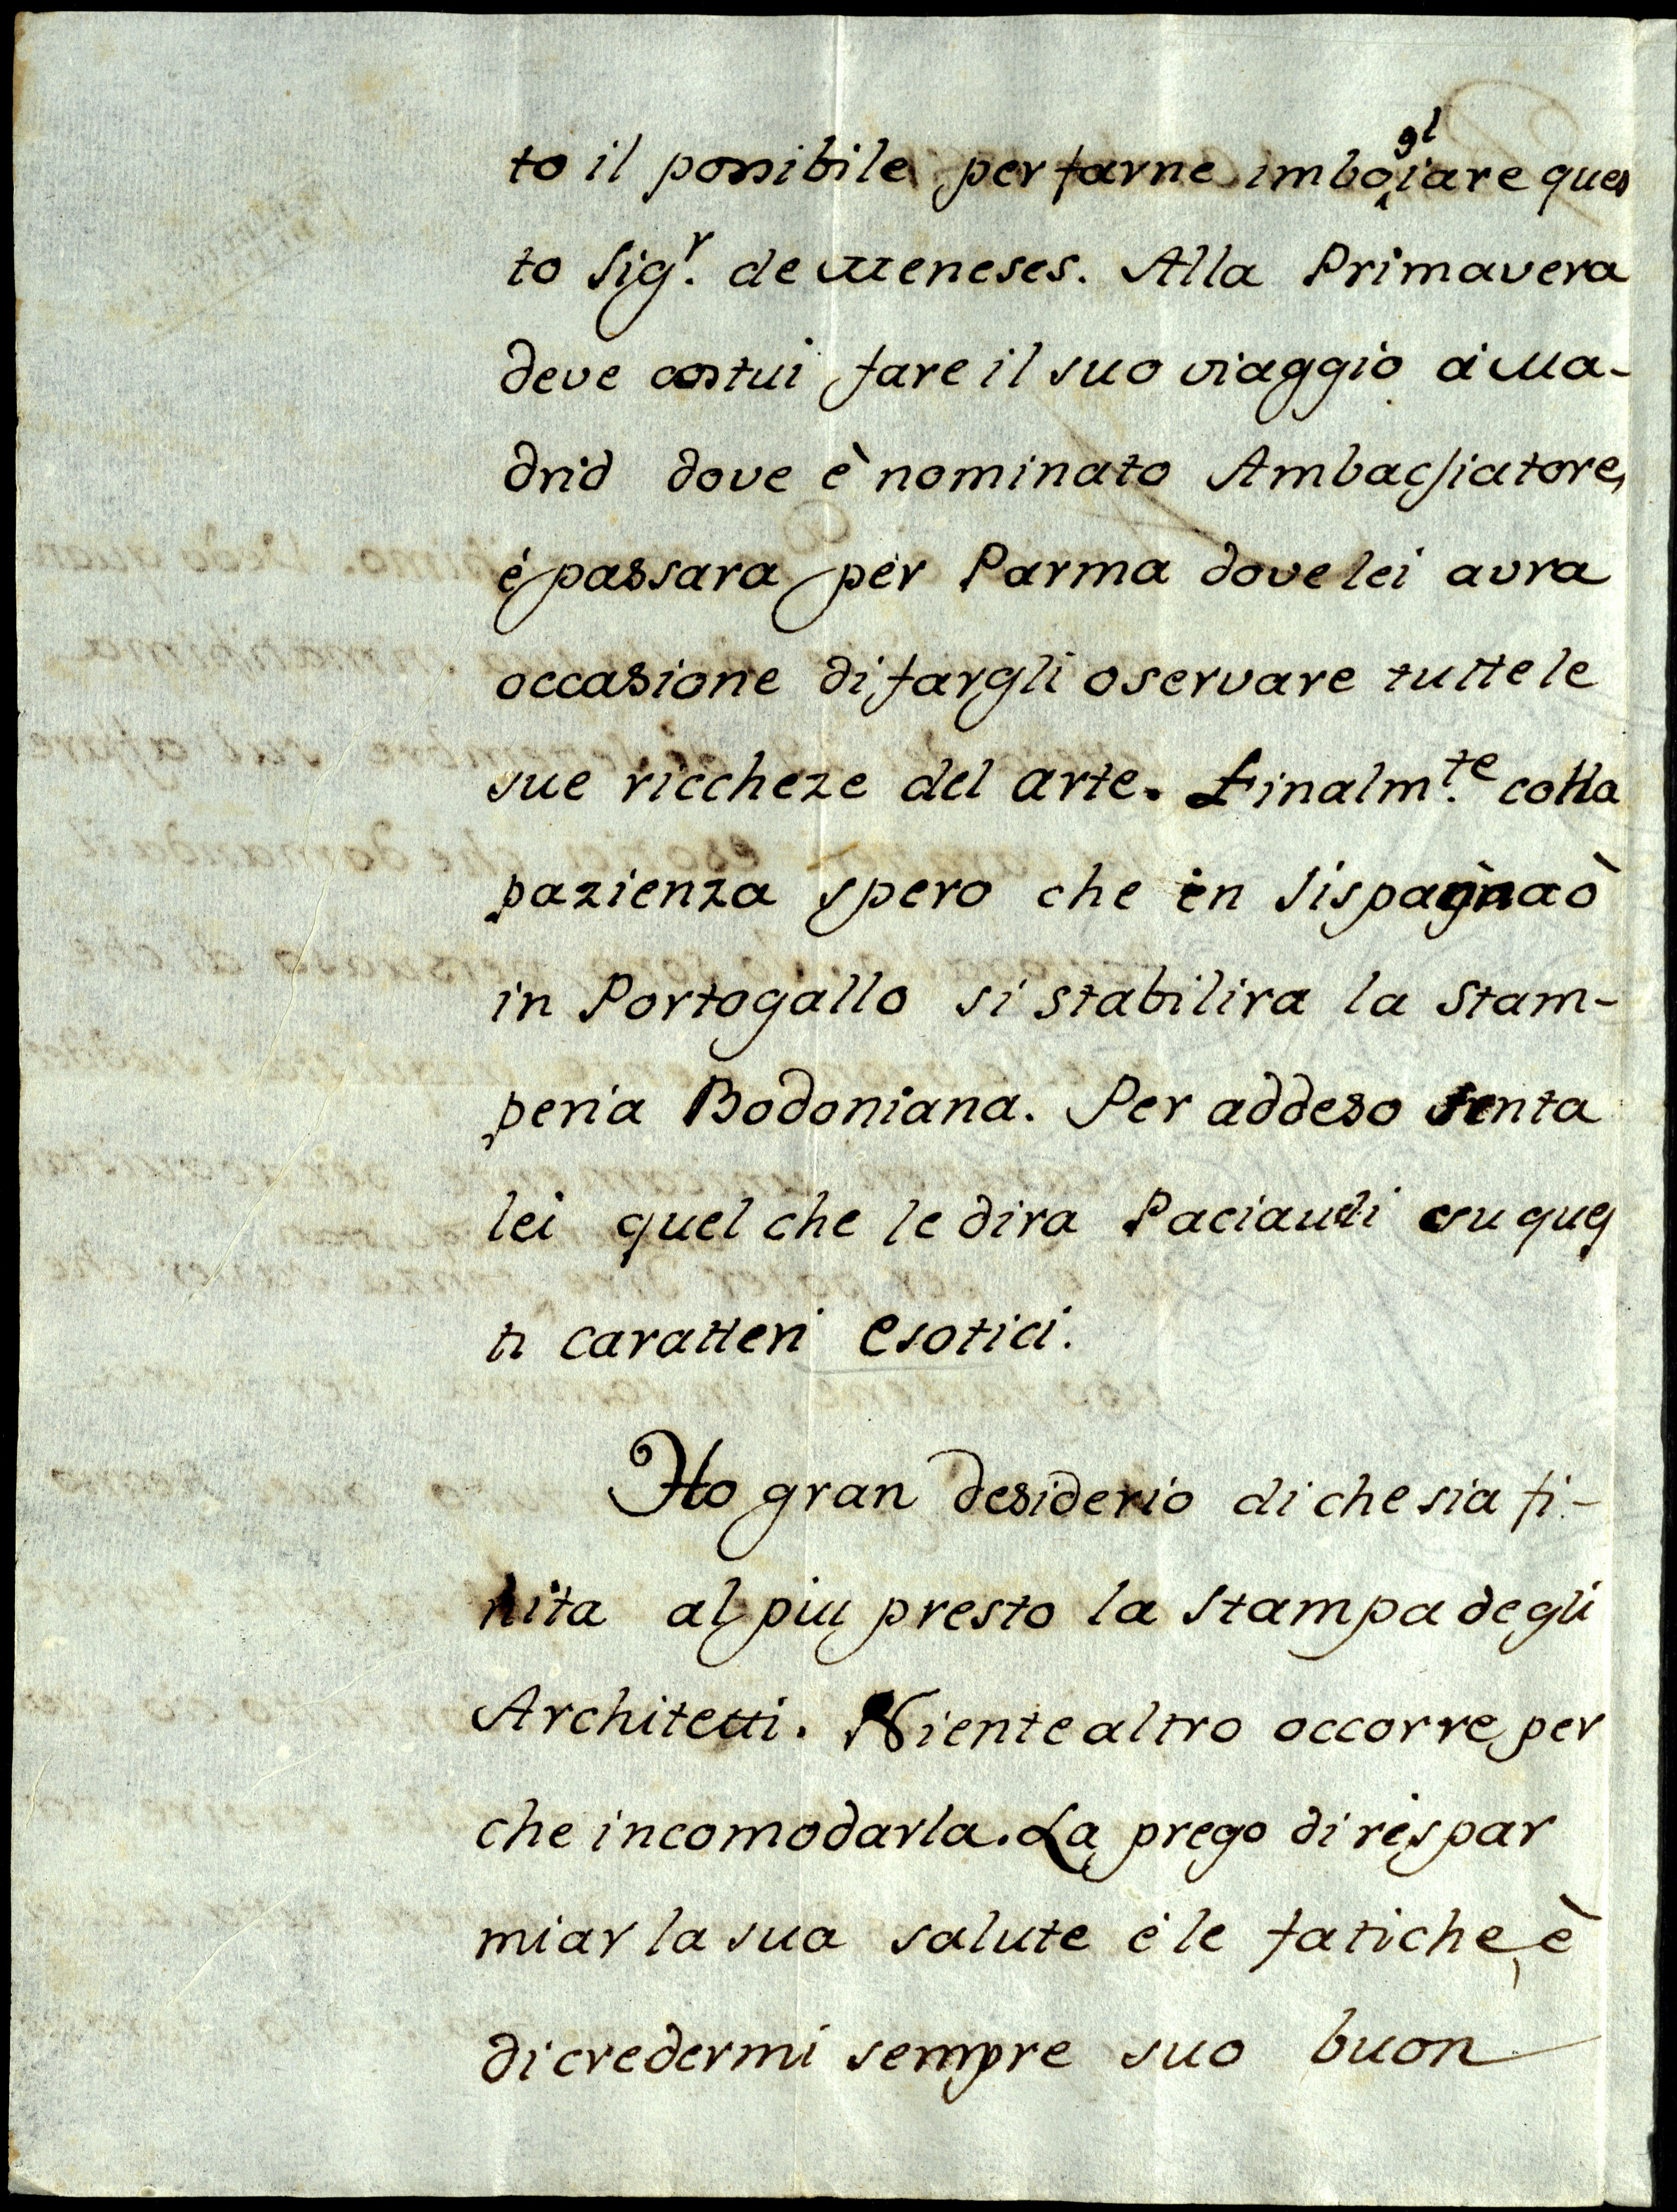 to il possibile per farne imbogliare ques
to Sig.r de Meneses. Alla Primavera
deve costui fare il suo viaggio a Ma-
drid dove è nominato Ambasciatore,
é passara per Parma dove lei avra
occasione di fargli oservare tutte le
sue riccheze del arte. Finalm.te colla
pazienza spero che in Sispagna ò
in Portogallo si stabilira la Stam-
peria Bodoniana. Per addeso senta
lei quel che le dira Paciaudi su ques
ti caratteri esotici.
Ho gran desiderio di che sia fi-
nita al piu presto la Stampa degli
Architetti. Niente altro occorre per
che incomodarla. La prego di rispar
miar la sua salute é le fatiche, è
di credermi sempre suo buon